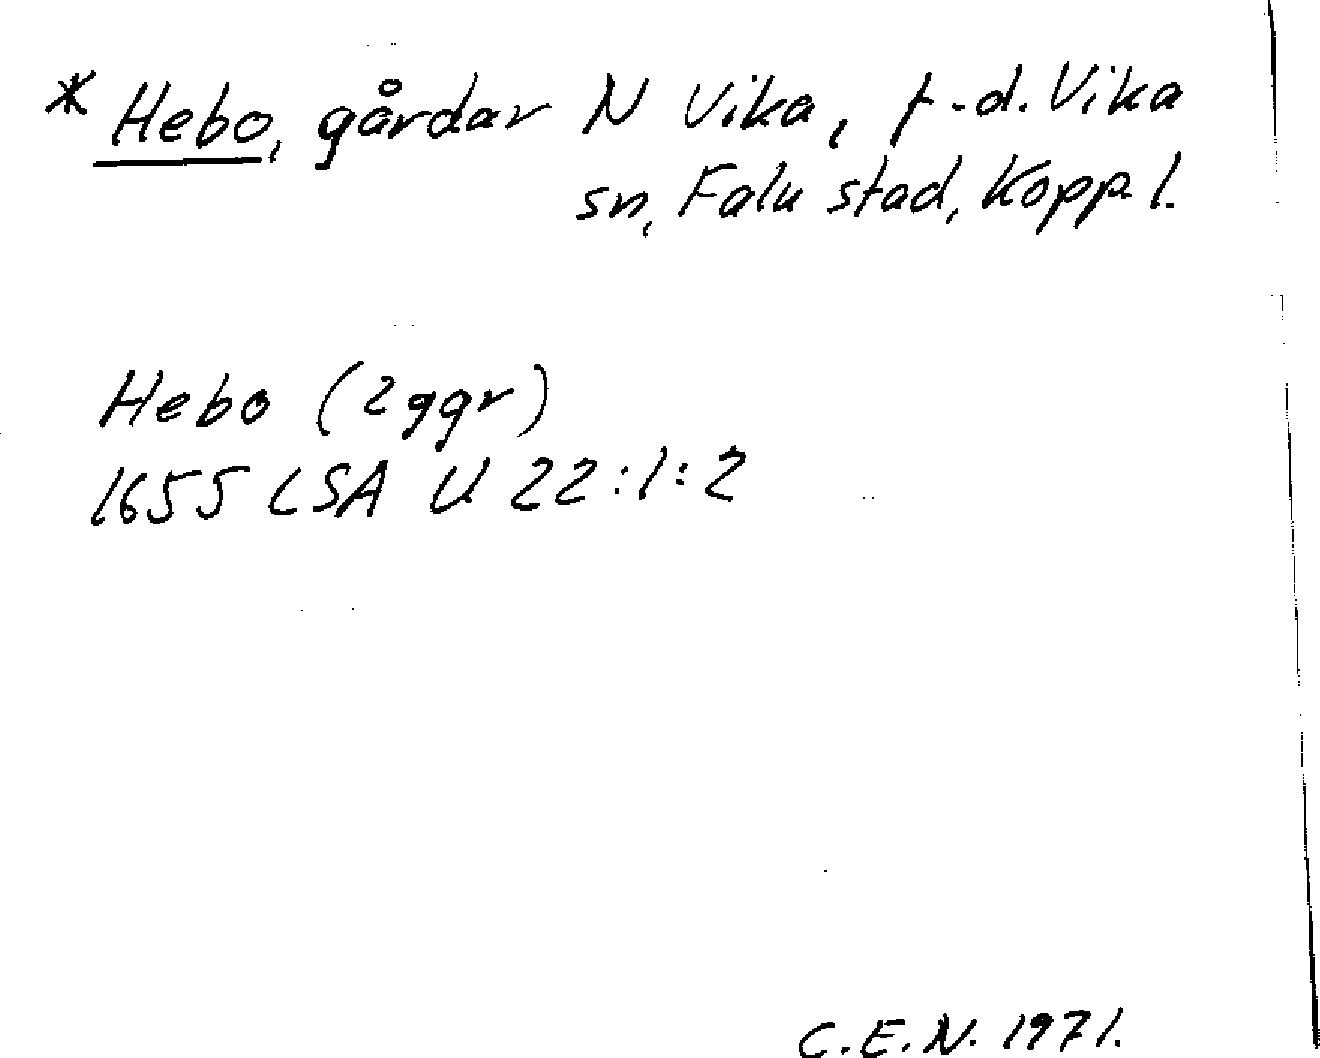 * Hebo, gårdar N Vika, f.d. Vika
sn, Falu stad, Kopp. l.
Hebo (2 ggr)
1655 LSA U 22:1:2
C.E.N. 1971.